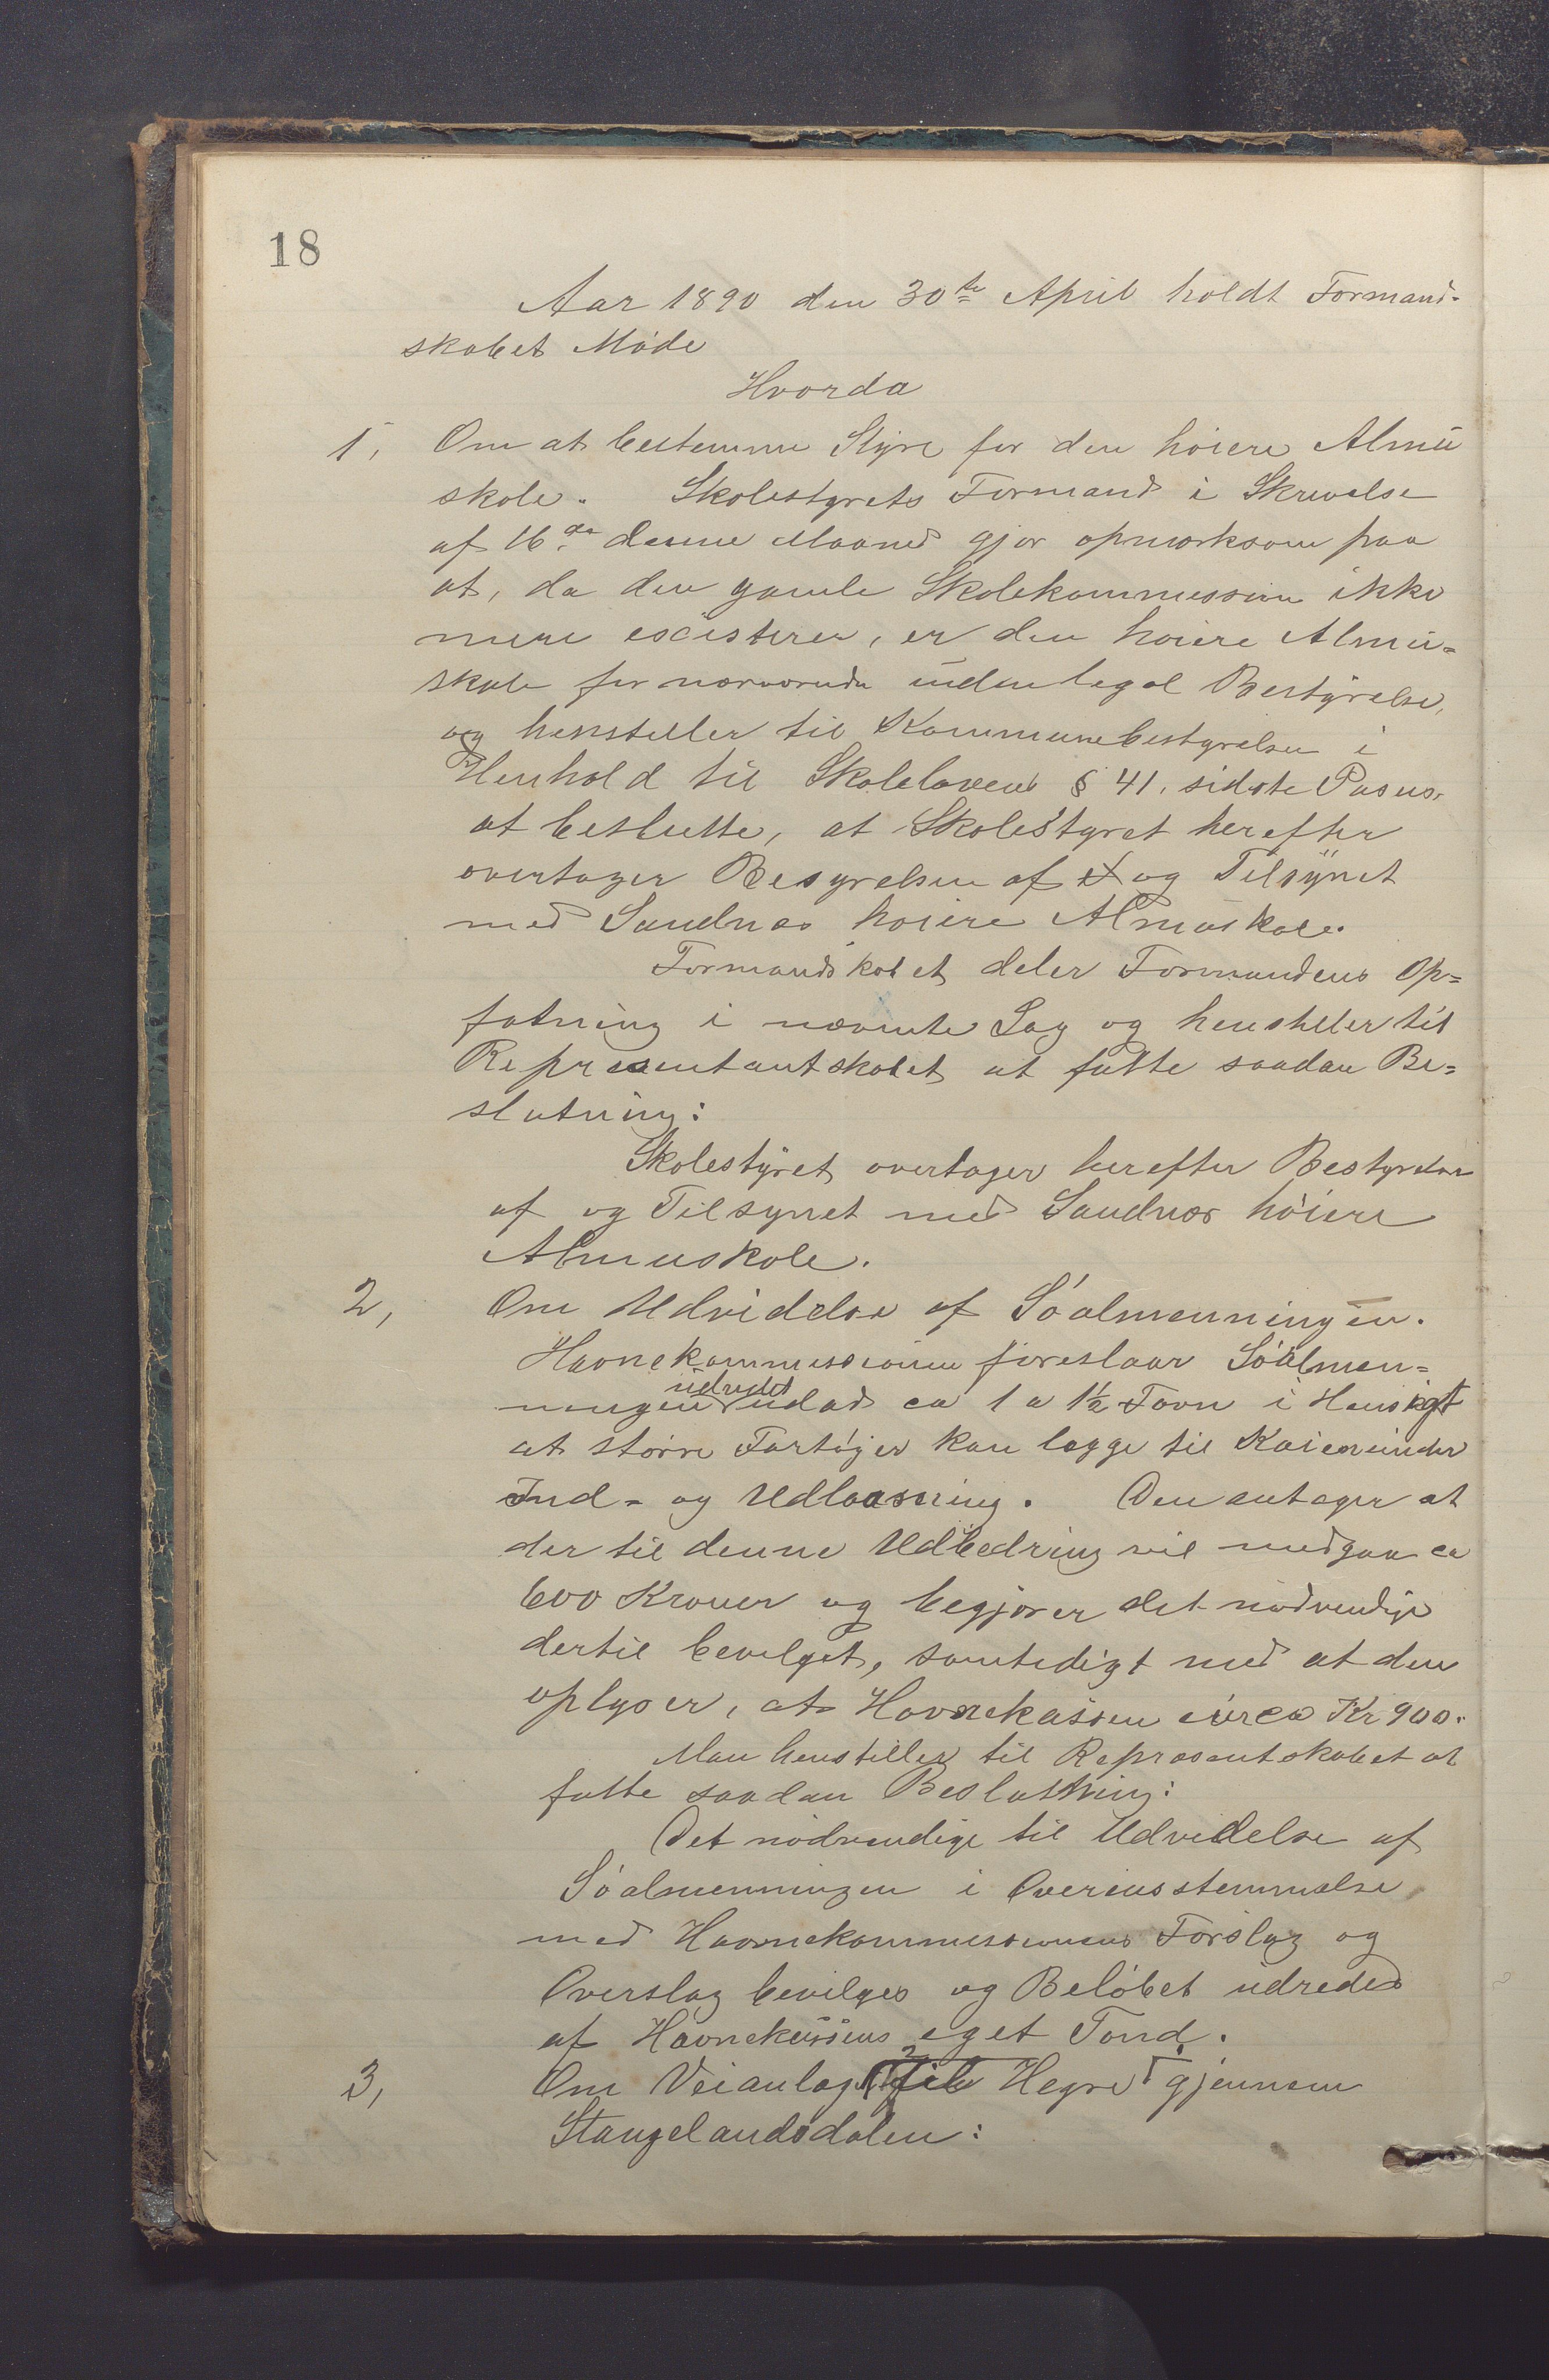 18
Aar 1890 den 30te April holdt Formand-
skabet Møde
Hvorda
1, Om at bestemme Styre for den høiere Almu
skole. Skolestyrets Formand i Skrivelse
af 16de denne Maaned gjør opmærksom paa
at, da den gamle Skolekommission ikke
mere existerer, er den høiere Almu=
skole for nærværende uden legal Bestyrelse,
og henstiller til Kommunebestyrelsen i
Henhold til Skoleloven § 41, sidste Pasus,
at beslutte, at Skolestyret herefter
overtager Besyrelsen af og Tilsynet
med Sandnæs høiere Almuskole.
Formandskabet deler Formandens Op=
fatning i nævnte Sag og henstiller til
Repræsentantskabet at fatte saadan Be=
slutning:
Skolestyret overtager herefter Bestyrelsen
af og Tilsynet med Sandnæs høiere
Almuskole.
2, Om Udvidelse af Søalmenningen.
Havnekommissionen foreslaar Søalmen=
udvidet
ningen udad ca 1 a 1½ Favn i Hensigt
at større Fartøjer kan lægge til Kaien under
Ind- og Udlossning. Den antager at
der til denne Udbedring vil medgaa ca
600 Kroner og begjærer det nødvendige
dertil bevilget, samtidigt med at den
oplyser, at Havnekassen circa Kr 900.
Man henstiller til Repræsentskabet at
fatte saadan Beslutning:
Det nødvendige til Udvidelse af
Søalmenningen i Overensstemmelse
med Havnekommissionens Forslag og
Overslag bevilges og Beløbet udredes
af Havnekassens eget Fond.
3, Om Veianlæg til Hegre gjennem
Stangelandsdalen: